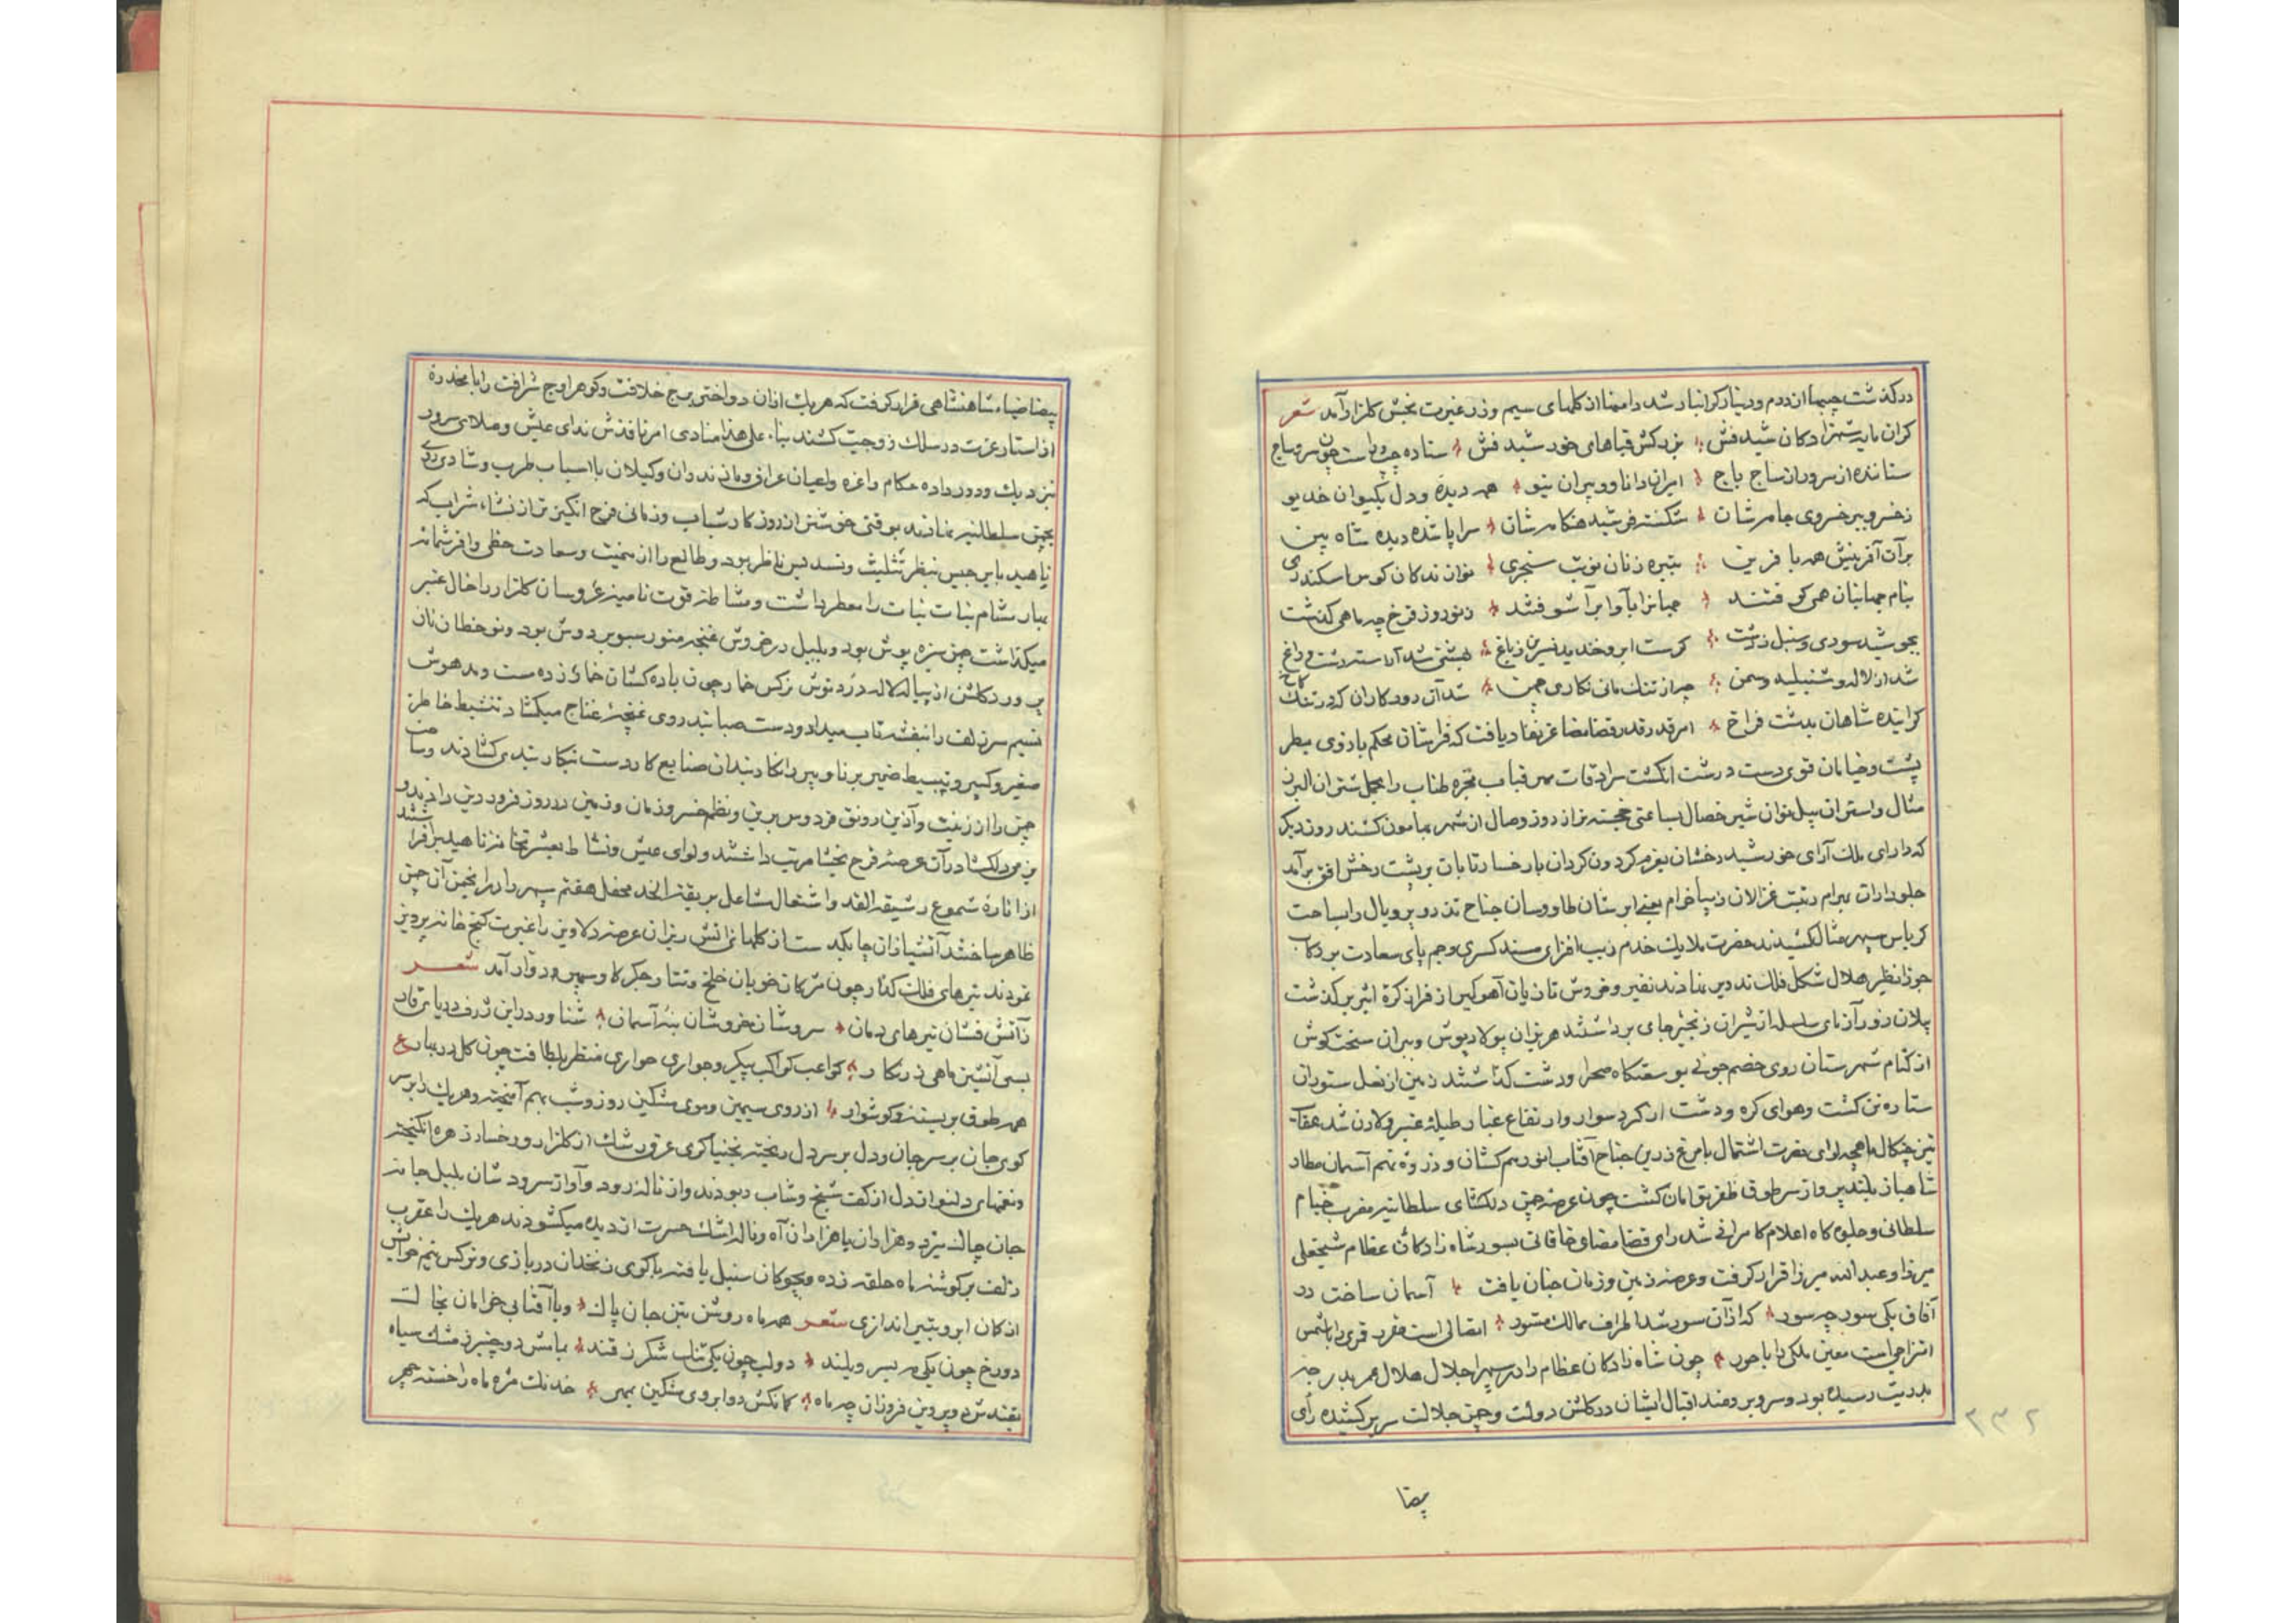 درگذشت جیبها از درم و دینار گرانبار شد دامنها از گلهای سیم و زر غیرت بخش گلزار آمد شعر
گران مایه شهزادگان شیدفش بزرکش قباهای خورشید فش ستاده چپ و راست چون سرو ساج
ستاننده از سروران ساج باج امیران دانا و پیران نیو همه دیده و دل بکیوان خدیو
ز خسرو بر خسروی جامه شان شکسته فر شید هنگامه شان سراپا شده دیده شاه بین
بر آن آفرینش همه با فرین تبیره زنان نوبت سنجری نوازندگان کوس اسکندری
بنام جهانبان همی کوفتند جهانرا بآوا بر آشوفتند ز نوروز فرخ چه ماهی گذشت
بجوشید سوری و سنبل ز دشت گرست ابر و خندید نسرین ز باغ بهشتی شد آراسته دشت و راغ
شد از لاله و شنبلید و سمن چو ارتنگ مانی نگاری چمن شد آن رود کاران که در تنگ کاخ
گراینده شاهان بدشت فراخ امر قدر قدر قضا مضا عز نفاد یافت که فراشان محکم بازوی سطبر
پشت و خیامان قوی دست درشت انگشت سرادقات سپهر قباب مجره طناب را بحمل شتران البرز
مثال و استران پیل توان شیر خصال بساعتی خجسته تر از روز وصال از شهر بهامون کشند روز دیگر
که دارای ملک آرای خورشید رخشان بعزم گردون گردان با رخسار تابان بر پشت رخش افق برآمد
جلوداران بهرام رتبت غزالان زیبا خرام یعنی ابرشان طاووسان جناح تذرو پر و یال را بساحت
کریاس سپهر مثال کشیدند حضرت ملایک خدم زیب افزای مسند کسری و جم پای سعادت بر رکاب
جوزا نظیر هلال شکل فلک تدویر نهادند نفیر و خروش تازیان آهو گیر از فراز کره اثیر بر گذشت
پلان زور آزمای سلسله از شیران زنجیر خای برداشتند هژبران پولاد پوش و ببران سخت کوش
از کنام شهرستان روی خصم جوئی بوسعتگاه صحرا و دشت گذاشتند زمین از نعل ستوران
ستاره تن گشت و هوای کوه و دشت از گرد سوار و ارتفاع غبار طبله عنبر و لادن شد عقاب
تیز چنگال ماهچه لوای نصرت اشتمال با مرغ زرین جناح آفتاب انور هم کشان و در ذروه نهم آسمان مطار
شاهباز بلند پرواز سر طوق ظفر توأمان گشت چون عرصه چمن دلگشای سلطانیه مضرب خیام
سلطانی و جلوه گاه اعلام کامرانی شد رای قضا مضای خاقانی بسور شاهزادگان عظام شیخعلی
میرزا و عبدالله میرزا قرار گرفت و عرصه زمین و زمان جنان یافت آسمان ساخت در
آفاق یکی سور چه سور که از آن سور شد اطراف ممالک مسرور اتصالی است مقرر قمری را با شمس
امتزاجی است معین ملکی را با حور چون شاهزادگان عظام را در سپهر اجلال هلال عمر بدرجه
بدریت رسیده بود و سرو برومند اقبال ایشان در گلشن دولت و چمن جلالت سر بر کشیده رأی
بیضا
۲۳۲
بیضا ضیاء شاهنشاهی قرار گرفت که هریک از آن دو اختر برج خلافت و گوهر اوج شرافت را با مخدره
از استار عزت در سلک زوجیت کشند بناء علی هذا منادی امر نافذش ندای عیش و صلای سرور
نزدیک و دور داده حکام و اعزه و اعیان عراق و مازندران و گیلان با اسباب طرب و شادی روی
بچمن سلطانیه نهادند بوقتی خوشتر از روزگار شباب و زمانی فرح انگیزتر از نشاء شراب که
ناهید با برجیس بنظر تثلیث و تسدیس ناظر بود و طالع را از میمنت و سعادت حظی وافر شمامه
بهار مشام بنات نبات را معطر داشت و مشاطه قوت نامیه عروسان گلزار را خال عنبر
میگذاشت چمن سبزه پوش بود و بلبل در خروش غنچه مستور سبو بر دوش بود و نو خطان نازپرور
در گلشن از پیاله لاله درد نوش نرگس خمار چون باده کشان خمار زده مست و مدهوش
نسیم سر زلف بنفشه تاب میداد و دست صبا بند روی غنچه غناج میگشاد تنشیط خاطر
صغیر و کبیر و تبسیط ضمیر برنا و پیر را نگاربندان صنایع کار دست بنگاربندی گشادند و ساحت
چمن را از زینت و آذین رونق فردوس برین و نظم خسرو زمان و زمین در روز فرودین دادند و
بزمی دلگشا در آن عرصه فرح بخشا مرتب داشتند و لوای عیش و نشاط بعشرتخانه ناهید برافراشتند
از اناره شموع رشیقة القد و اشتعال مشاعل بریقة الخد محفل هفتم سپهر را در انجمن آن چمن
ظاهر ساختند آتشبازان چابکدست از گلهای آتش ریز آن عرصه دلاویز را غیرت گنج خانه پرویز
نمودند تیرهای فلک گذار چون مژگان خوبان خلخ و تتار جگر کاو سپهر دوار آمد شعر
ز آتش فشان تیرهای دمان سروشان خروشان بنه آسمان شناور در این ژرف دریای قار
بسی آتشین ماهی زرنگار کواعب کواکب پیکر و جواری حواری منظر بلطافت چون گل در بهار ع
همه طوق بر بسته و گوشوار از روی سیمین و موی مشکین روز و شب بهم آمیخته و هریک را بر سر
کوی جان بر سر جان و دل بر سر دل ریخته بخنیاگری عرق رشک از گلزار رخسار زهره انگیخته
و نغمهای دلنواز دل از کف شیخ و شاب ربودند و از ناله رود و آواز سرودشان بلبل جامه
جان چاک میزد و هزاران با هزاران آه و ناله اشک حسرت از دیده میگشودند هریک را عقرب
زلف بر گوشه ماه حلقه زده و چوگان سنبل یافته با گوی زنخدان در بازی و نرگس نیم خوابش
از کمان ابرو بتیر اندازی شعر همه ماه روشن بتن جان پاک و یا آفتابی خرامان بخاک
دو رخ چون یکی مه بسر و بلند دو لب چون یکی تنگ شکر ز قند بماهش دو چنبر ز مشک سیاه
بقندش دو پروین فروزان چه ماه کمانکش دو ابروی مشکین بمهر خدنک مژه ماه را خسته چهر